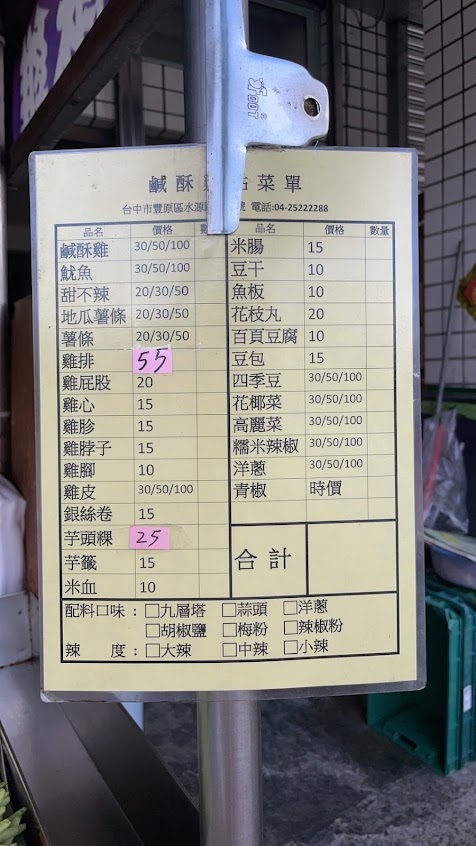 鹹酥雞 菜單
台中市豐原區水源 號 電話:04-25222288
品名 價格 數 品名 價格 數量
鹹酥雞 30/50/100 米腸 15
魷魚 30/50/100 豆干 10
甜不辣 20/30/50 魚板 10
地瓜薯條 20/30/50 花枝丸 20
薯條 20/30/50 百頁豆腐 10
雞排 55 豆包 15
雞屁股 20 四季豆 30/50/100
雞心 15 花椰菜 30/50/100
雞胗 15 高麗菜 30/50/100
雞脖子 15 糯米辣椒 30/50/100
雞腳 10 洋蔥 30/50/100
雞皮 30/50/100 青椒 時價
銀絲卷 15
芋頭粿 25
芋籤 15
米血 10
合計
配料口味：□九層塔 □蒜頭 □洋蔥
□胡椒鹽 □梅粉 □辣椒粉
辣 度：□大辣 □中辣 □小辣